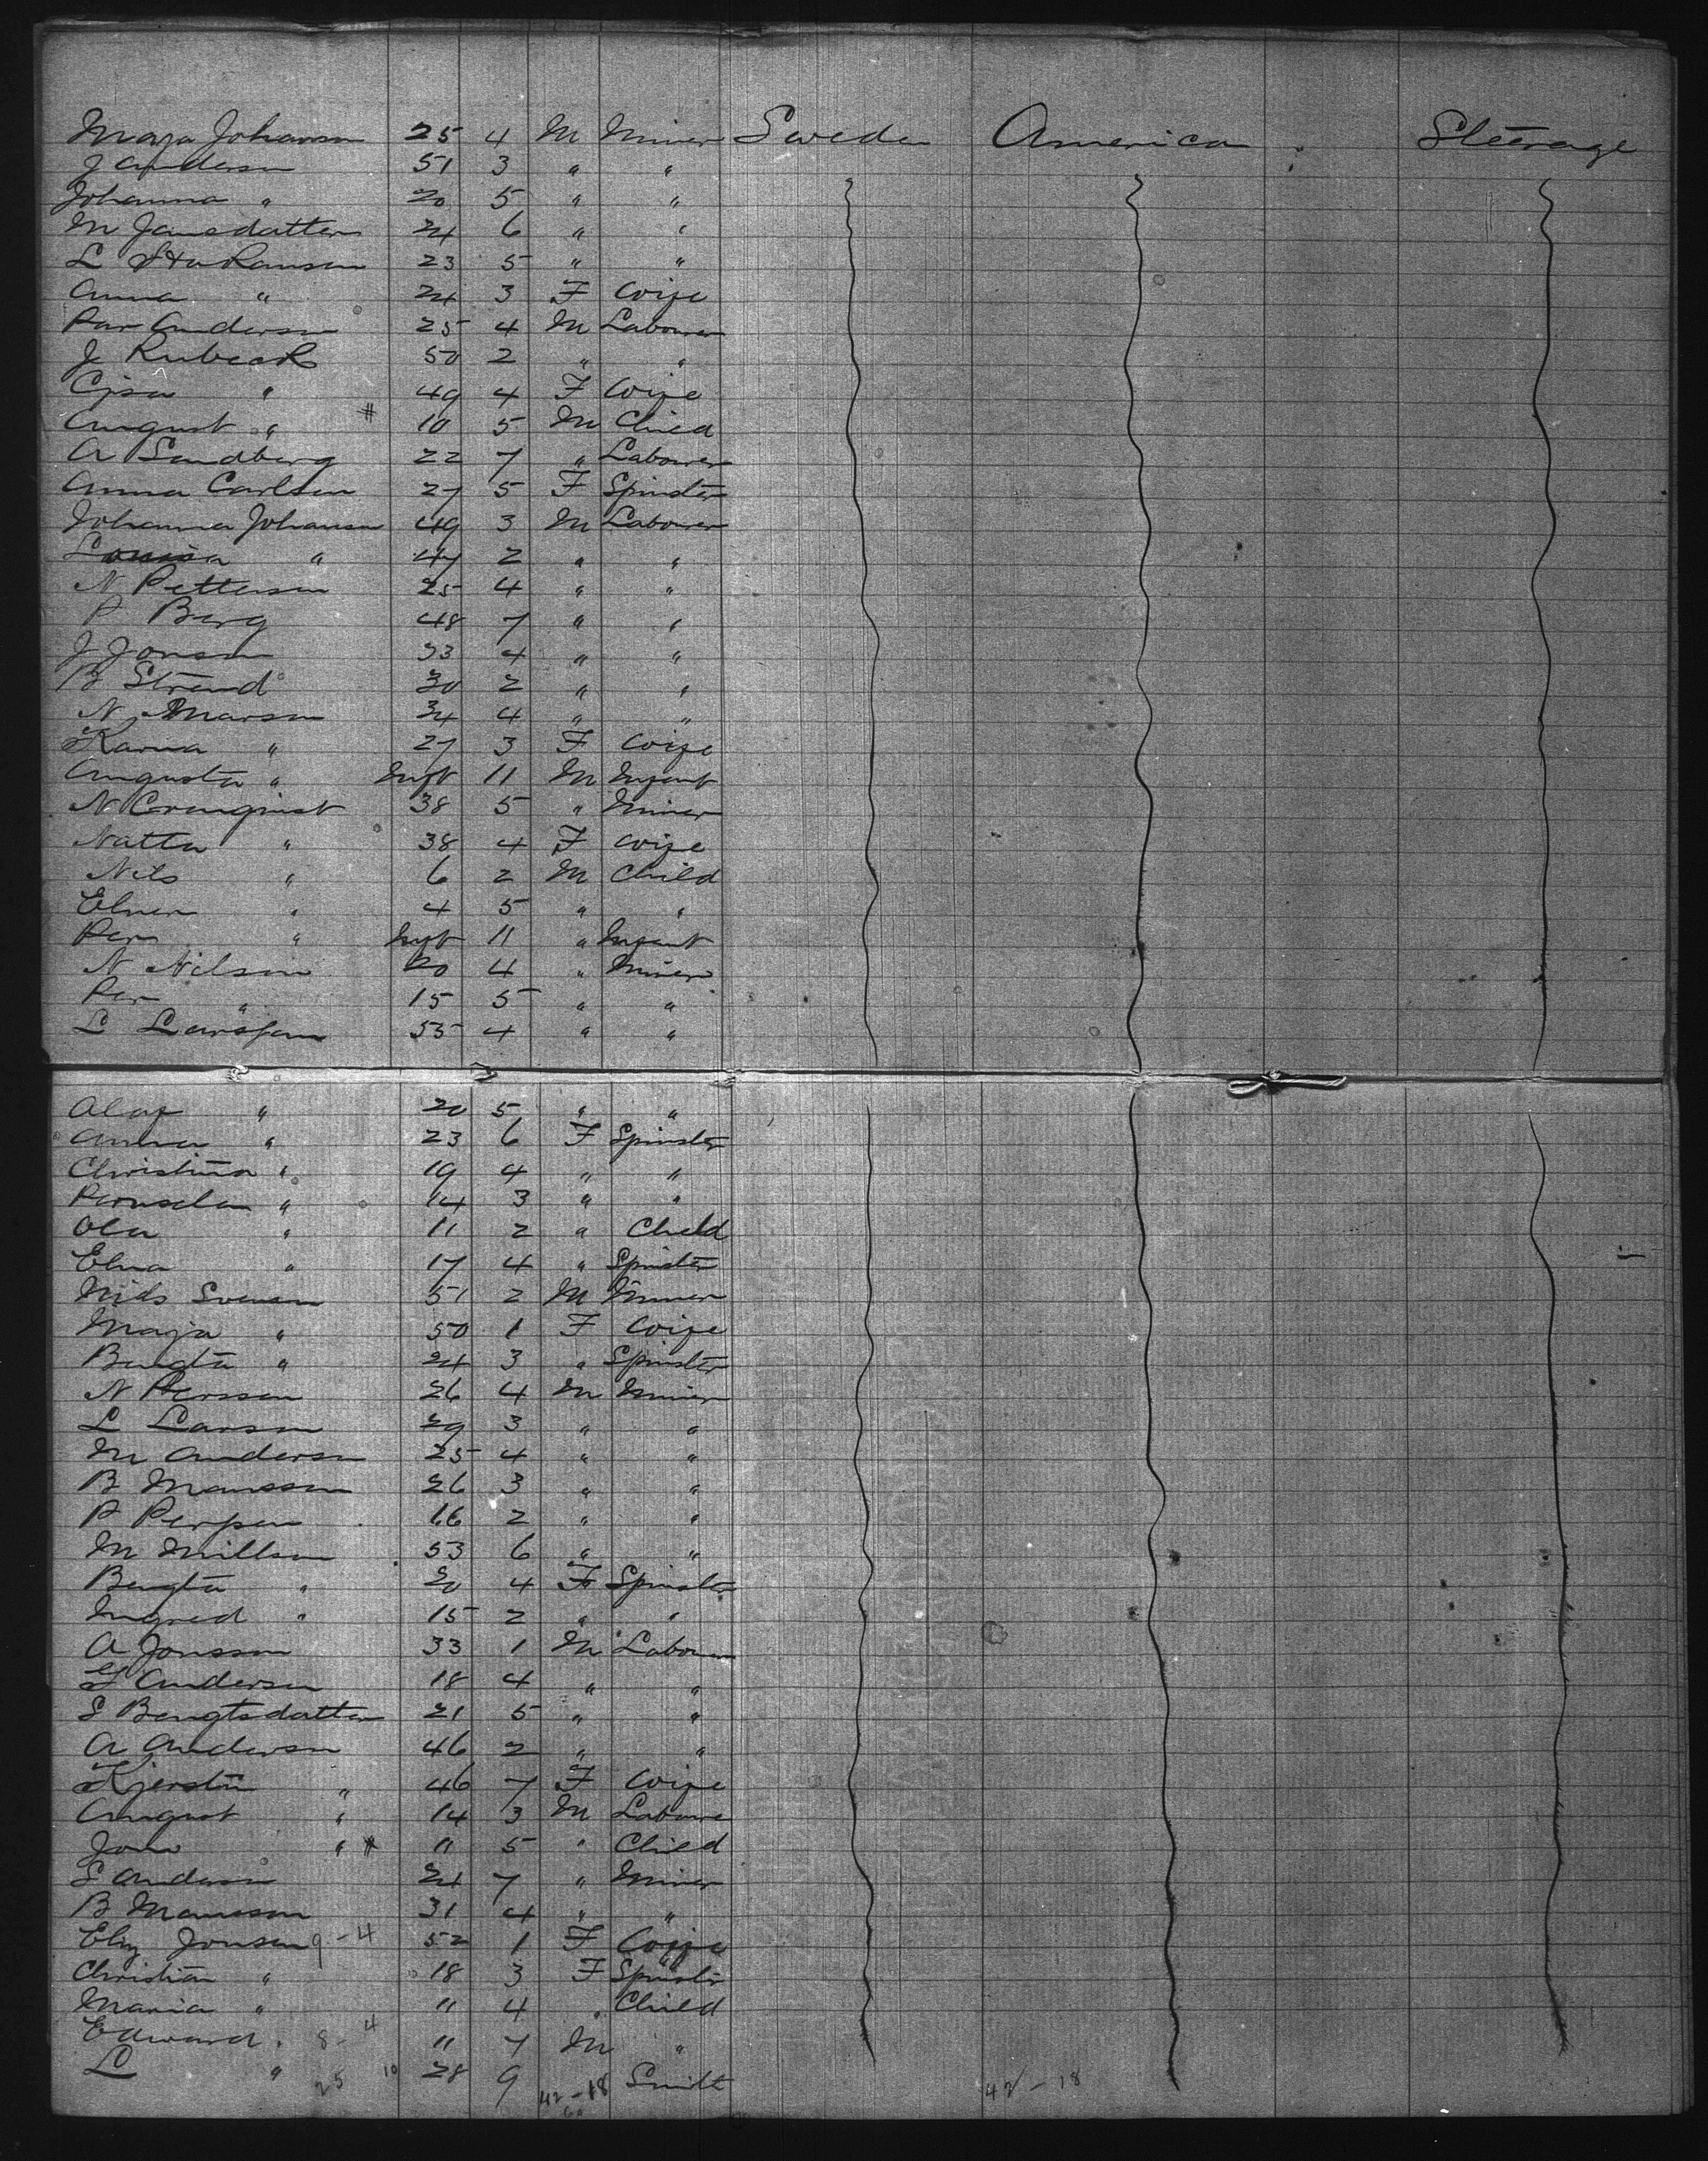 Maja Johanson 25 4 M Miner Sweden America Steerage
J Anderson 51 3 " "
Johanna " 20 5 " "
M Jansdatter 24 6 " "
L 23 5 " "
Anna " 24 3 F Wife
Par Anderson 25 4 M Labourer
J Rubeck 50 2 " "
Cjsa " 49 4 F Wife
August " # 10 5 M Child
A Sandberg 22 7 " Labourer
Anna Carlson 27 5 F Spinster
Johanna Johanson 49 3 M Labourer
Louisa " 47 2 " "
N Petterson 25 4 " "
P Berg 48 7 " "
J Jonson 33 4 " "
B Strand 30 2 " "
N Marson 34 4 " "
Karna " 27 3 F Wife
Augusta " Inft 11 M Infant
N Cronquist 38 5 " Miner
Natta " 38 4 F Wife
Nils " 6 2 M Child
Elner " 4 5 " "
Per " Inft 11 " Infant
N Nilson 20 4 " Miner
Per " 15 5 " "
L Larsson 55 4 " "
Olof " 20 5 " "
Anna " 23 6 F Spinster
Christina " 19 4 " "
" 14 3 " "
Ola " 11 2 " Child
Elna " 17 4 " Spinster
Nils Svenson 51 2 M Miner
Maja " 50 1 F Wife
Bengta " 24 3 " Spinster
N Persson 26 4 M Miner
L Larson 29 3 " "
M Anderson 25 4 " "
B Mansson 26 3 " "
P Persson 16 2 " "
M Millson 53 6 " "
Bengta " 20 4 F Spinster
Ingred " 15 2 " "
A Jonsson 33 1 M Labourer
G Anderson 18 4 " "
S Bengtsdatter 21 5 " "
A Anderson 46 2 " "
Kjerstin " 46 7 F Wife
August " 14 3 M Laboure
Jons " # 11 5 " Child
S Anderson 24 7 " Miner
B Mansson 31 4 " "
Eliz Jonson 9-4 52 1 F Wife
Christian " 18 3 F Spinster
Maria " 11 4 " Child
Edward " 8-4 11 7 M "
L " 25 10 28 9 42-18 Smith 42-18